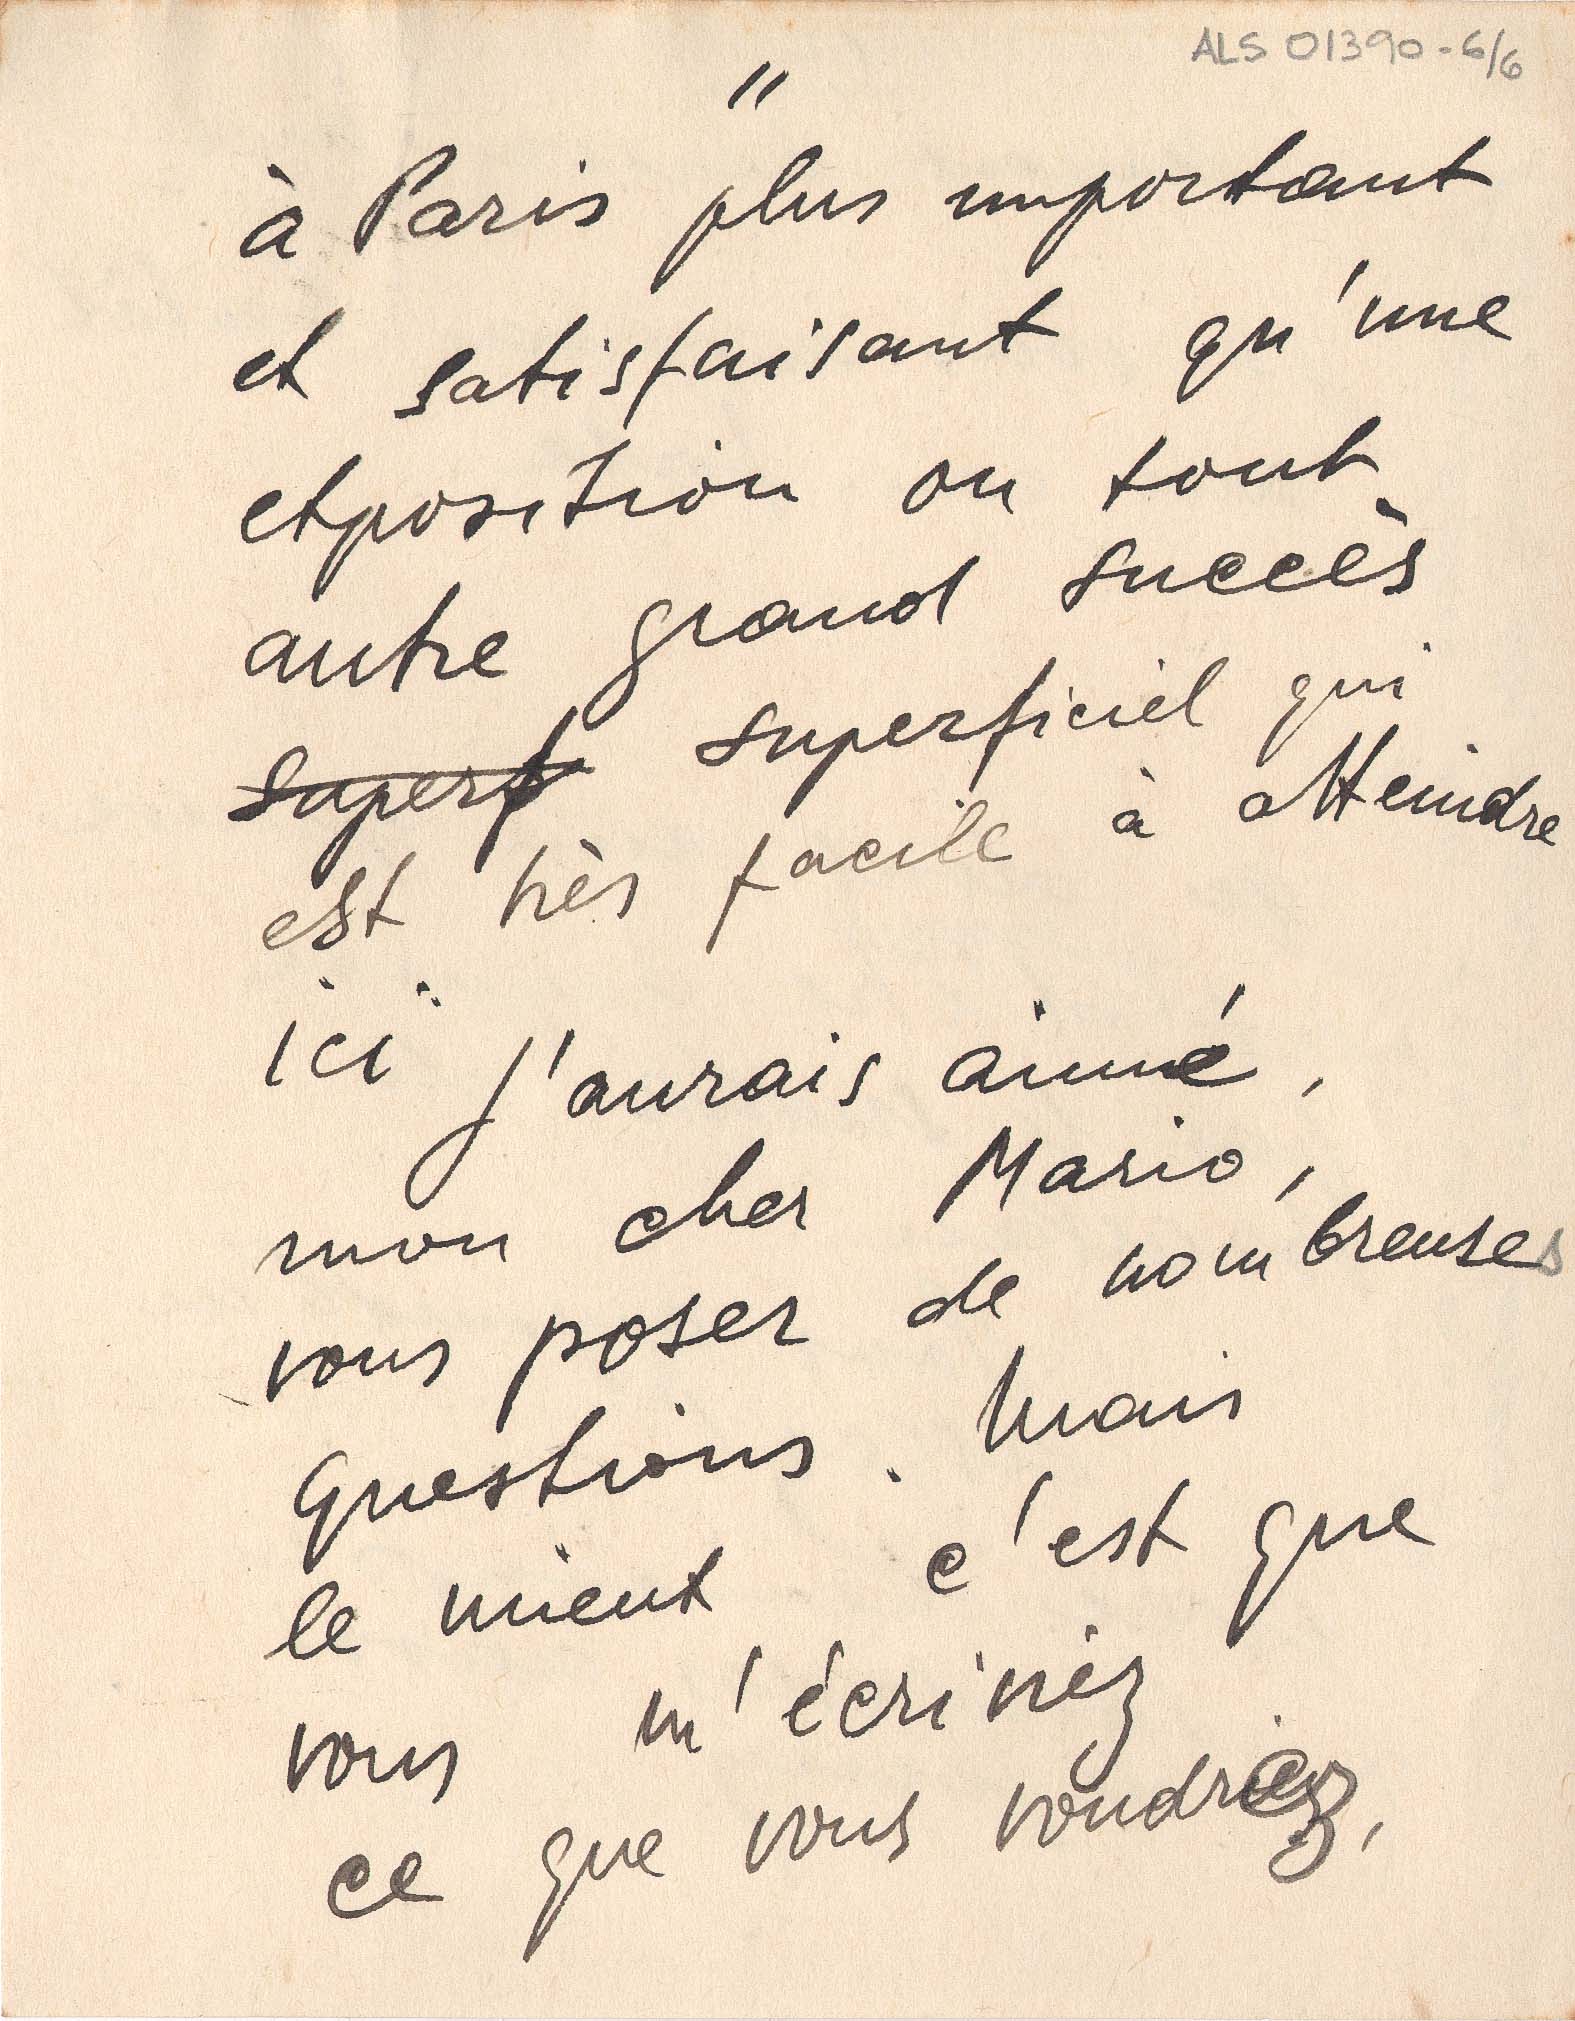 ALS 01390-6/6
11
à Paris plus important
et satisfaisant qu'une
exposition ou tout
autre grand succès
superf superficiel qui
est très facile à atteindre
ici j'aurais aimé,
mon cher Mario,
vous poser de nombreuses
questions. Mais
le mieux c'est que
vous m'écriviez
ce que vous voudriez,